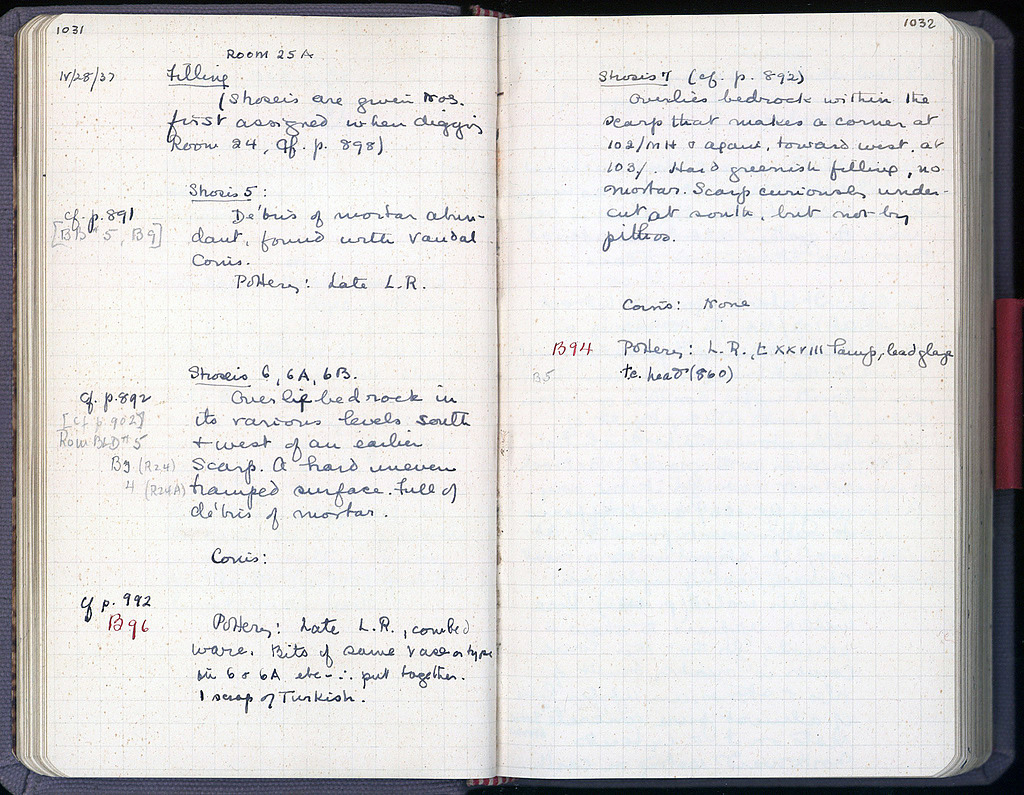 1031
ROOM 25A
IV/28/37
Filling
(Stroseis are given Nos.
first assigned when digging
Room 24, cf. p. 898)
Strosis 5:
cf. p. 891
Débris of mortar abun-
[BB 5, B9]
dant, found with Vandal
Coins.
Pottery: Late L.R.
Strosis 6, 6A, 6B.
cf. p. 892
Overlie bedrock in
[cf p. 902]
its various levels south
Room 5
+ west of an earlier
B9 (R24)
Scarp. A hard uneven
4 (R24A)
tramped surface. Full of
débris of mortar.
Coins:
cf p. 992
B96
Pottery: Late L.R., combed
ware. Bits of same vase or type
in 6 & 6A etc - ∴ put together.
1 scrap of Turkish.
1032
Strosis 7 (cf. p. 892)
Overlies bedrock within the
scarp that makes a corner at
102/ΜΗ & again, toward west, at
103/. Hard greenish filling, no
mortar. Scarp curiously under-
cut at south, but not by
pithos.
Coins: None
B94
Pottery: L.R., t XXVIII lamp, lead glaze
B5
tc. head (860)